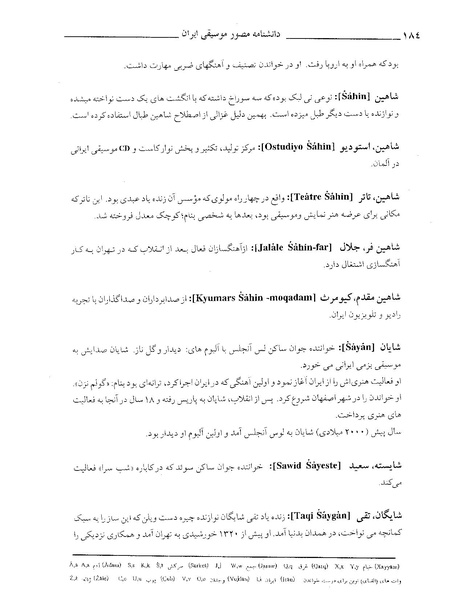 ١٨٤ دانشنامه مصور موسیقی ایران
بود که همراه او به اروپا رفت. او در خواندن تصنیف و آهنگهای ضربی مهارت داشت.
شاهین [Šâhin]: نوعی نی لبک بوده که سه سوراخ داشته که با انگشت های یک دست نواخته میشده
و نوازنده با دست دیگر طبل میزده است. بهمین دلیل غزالی از اصطلاح شاهین طبال استفاده کرده است.
شاهین، استودیو [Ostudiyo Šâhin]: مرکز تولید، تکثیر و پخش نوار کاست و CD موسیقی ایرانی
در آلمان.
شاهین، تاتر [Teâtre Šâhin]: واقع در چهار راه مولوی که مؤسس آن زنده یاد عبدی بود. این تاتر که
مکانی برای عرضه هنر نمایش وموسیقی بود، بعدها به شخصی بنام کوچک معدل فروخته شد.
شاهین فر، جلال [Jalâle Šâhin-far]: ازآهنگسازان فعال بعد از انقلاب که در تهران به کار
آهنگسازی اشتغال دارد.
شاهین مقدم، کیومرث [Kyumars Šâhin -moqadam]: از صدابرداران و صداگذاران با تجربه
رادیو و تلویزیون ایران.
شایان [Šâyân]: خواننده جوان ساکن لس آنجلس با آلبوم های: دیدار و گل ناز. شایان صدایش به
موسیقی بزمی ایرانی می خورد.
او فعالیت هنری‌اش را از ایران آغاز نمود و اولین آهنگی که در ایران اجرا کرد، ترانه‌ای بود بنام، «گولم نزن».
او خواندن را در شهر اصفهان شروع کرد. پس از انقلاب، شایان به پاریس رفته و ۱۸ سال در آنجا به فعالیت
های هنری پرداخت.
سال پیش (۲۰۰۰ میلادی) شایان به لوس آنجلس آمد و اولین آلبوم او دیدار بود.
شایسته، سعید [Sawid Šâyeste]: خواننده جوان ساکن سوئد که در کاباره «شب سرا» فعالیت
می‌کند.
شایگان، تقی [Taqi Šâygân]: زنده یاد تقی شایگان نوازنده چیره دست ویلن که این ساز را به سبک
کمانچه می نواخت، در همدان بدنیا آمد. او پیش از ۱۳۲۰ خورشیدی به تهران آمد و همکاری نزدیکی را